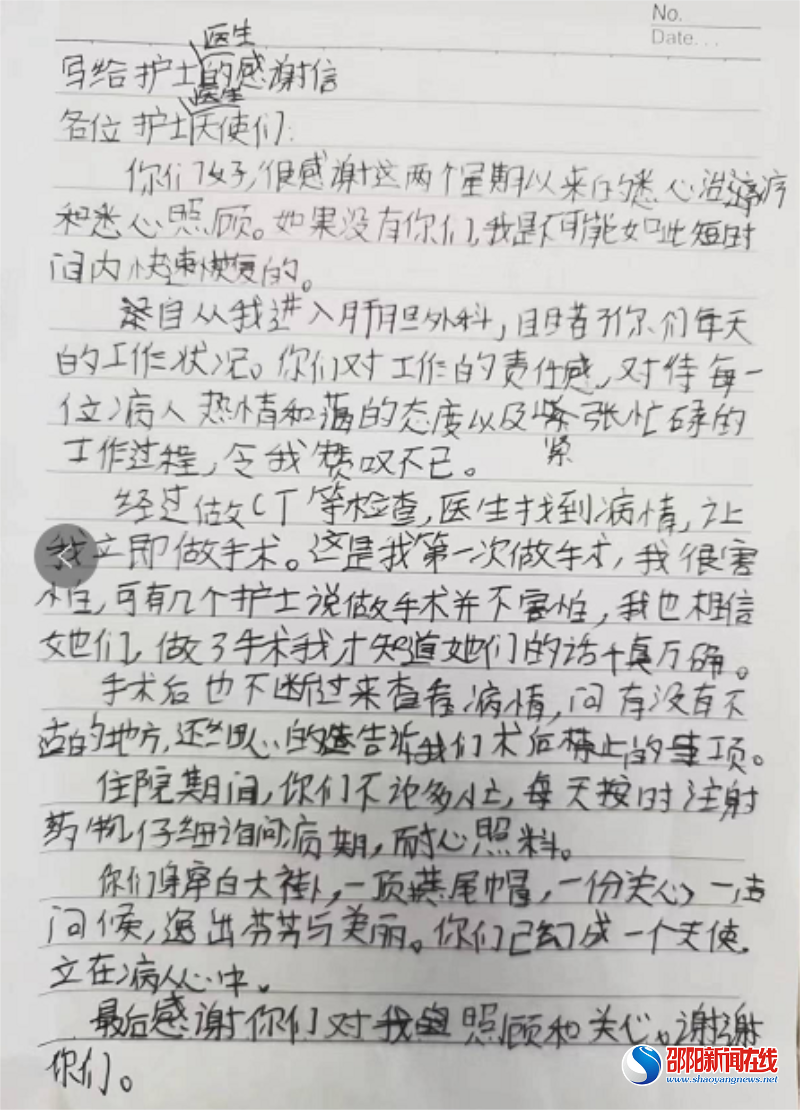 No.
Date...
医生
写给护士的感谢信
医生
各位护士天使们:
你们好,很感谢这两个星期以来的悉心治疗
和悉心照顾。如果没有你们,我是不可能如此短时
间内快速恢复的。
自从我进入肝胆外科,目睹了你们每天
的工作状况。你们对工作的责任感,对待每一
位病人热情和蔼的态度以及紧张忙碌的
紧
工作过程,令我赞叹不已。
经过做CT等检查,医生找到病情,让
我立即做手术。这是我第一次做手术,我很害
怕,可有几个护士说做手术并不害怕,我也相信
她们,做了手术我才知道她们的话千真万确。
手术后也不断过来查看病情,问有没有不
适的地方,还细心的告诉我们术后禁止的事项。
住院期间,你们不论多忙,每天按时注射
药物,仔细询问病期,耐心照料。
你们身穿白大褂,一顶燕尾帽,一份关心,一声
问候,透出芬芳与美丽。你们已幻成一个天使,
立在病人心中。
最后感谢你们对我照顾和关心。谢谢
你们。
邵阳新闻在线
www.shaoyangnews.net